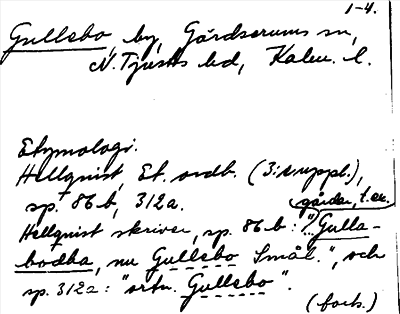 1-4.
Gullebo, by, Gärdserums sn,
N. Tjusts hd, Kalm. l.
Etymologi.
Hellquist, Et. ordb. (3:e uppl.),
sp. 86 b, 312a.
gårdar, t.ex.
Hellquist skriver, sp. 86 b: "..Gulla-
bodha, nu Gullebo Smål.", och
sp. 312a: "ortn. Gullebo".
(forts.)